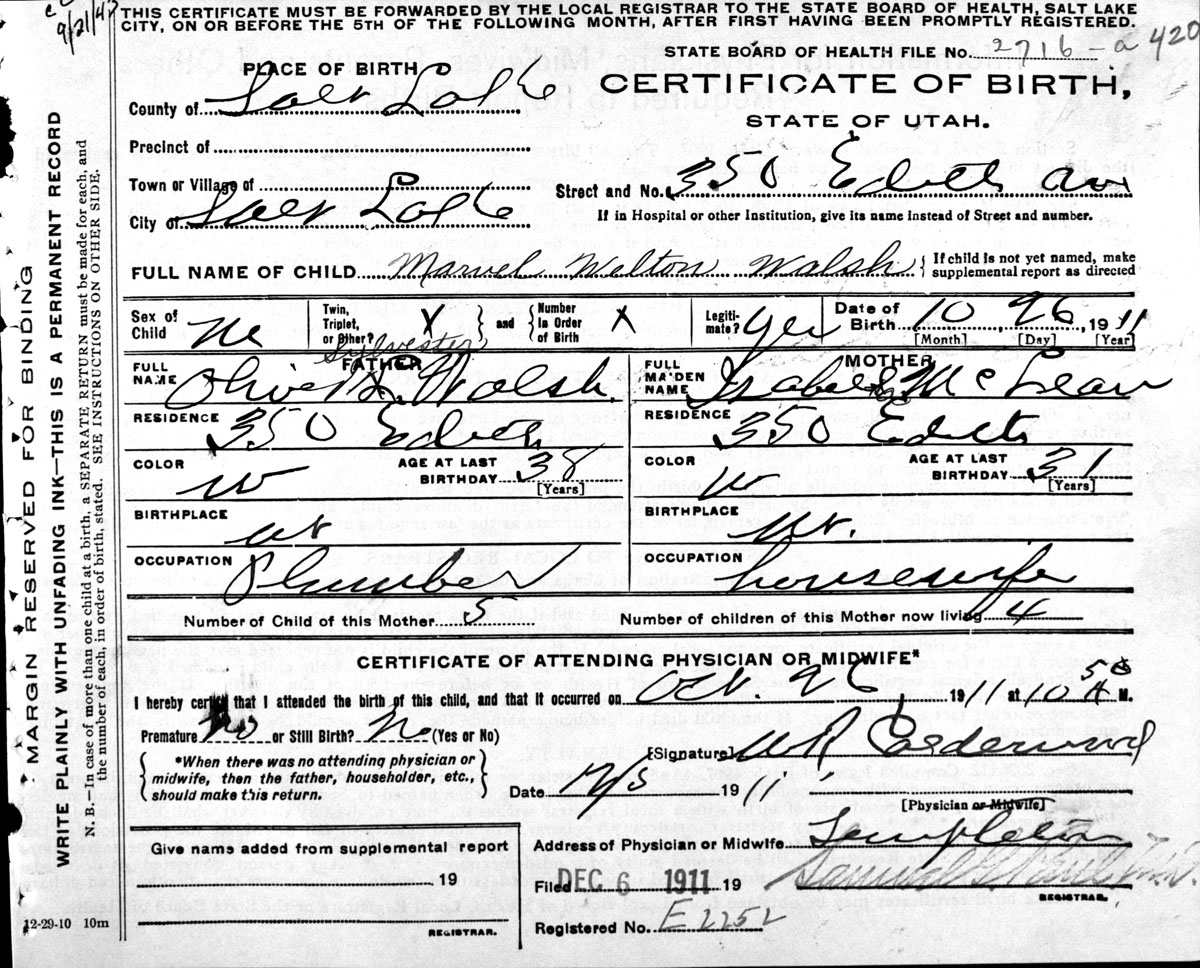 9/21/43
THIS CERTIFICATE MUST BE FORWARDED BY THE LOCAL REGISTRAR TO THE STATE BOARD OF HEALTH, SALT LAKE
CITY, ON OR BEFORE THE 5TH OF THE FOLLOWING MONTH, AFTER FIRST HAVING BEEN PROMPTLY REGISTERED.
STATE BOARD OF HEALTH FILE No. 2716-a 420
PLACE OF BIRTH
CERTIFICATE OF BIRTH,
STATE OF UTAH.
County of Salt Lake
Precinct of
Town or Village of
Street and No. 350 Edith Av
City of Salt Lake
If in Hospital or other Institution, give its name instead of Street and number.
FULL NAME OF CHILD Marvel Welton Walsh { If child is not yet named, make
supplemental report as directed
Sex of Child
Twin, Triplet, or Other? X } and { Number in Order of Birth X
Legitimate? Yes
Date of Birth 10, 26, 1911
[Month] [Day] [Year]
Sylvester
FATHER
MOTHER
FULL NAME Oliver S. Walsh
FULL MAIDEN NAME Isabel McLean
RESIDENCE 350 Edith
RESIDENCE 350 Edith
COLOR W AGE AT LAST BIRTHDAY 38 [Years]
COLOR W AGE AT LAST BIRTHDAY 31 [Years]
BIRTHPLACE Ut
BIRTHPLACE Ut.
OCCUPATION Plumber
OCCUPATION housewife
Number of Child of this Mother 5 Number of children of this Mother now living 4
CERTIFICATE OF ATTENDING PHYSICIAN OR MIDWIFE*
I hereby certify that I attended the birth of this child, and that it occurred on Oct. 26 1911 at 10 50 A M.
Premature No or Still Birth? No (Yes or No)
*When there was no attending physician or
midwife, then the father, householder, etc.,
should make this return.
[Signature] Calderwood
Date 1911
[Physician or Midwife]
Give name added from supplemental report
Address of Physician or Midwife Templeton
19
Filed DEC 6 1911 19
REGISTRAR.
Registered No. E 2252
REGISTRAR.
12-29-10 10m
MARGIN RESERVED FOR BINDING
WRITE PLAINLY WITH UNFADING INK—THIS IS A PERMANENT RECORD
N. B.—In case of more than one child at a birth, a SEPARATE RETURN must be made for each, and
the number of each, in order of birth, stated. SEE INSTRUCTIONS ON OTHER SIDE.